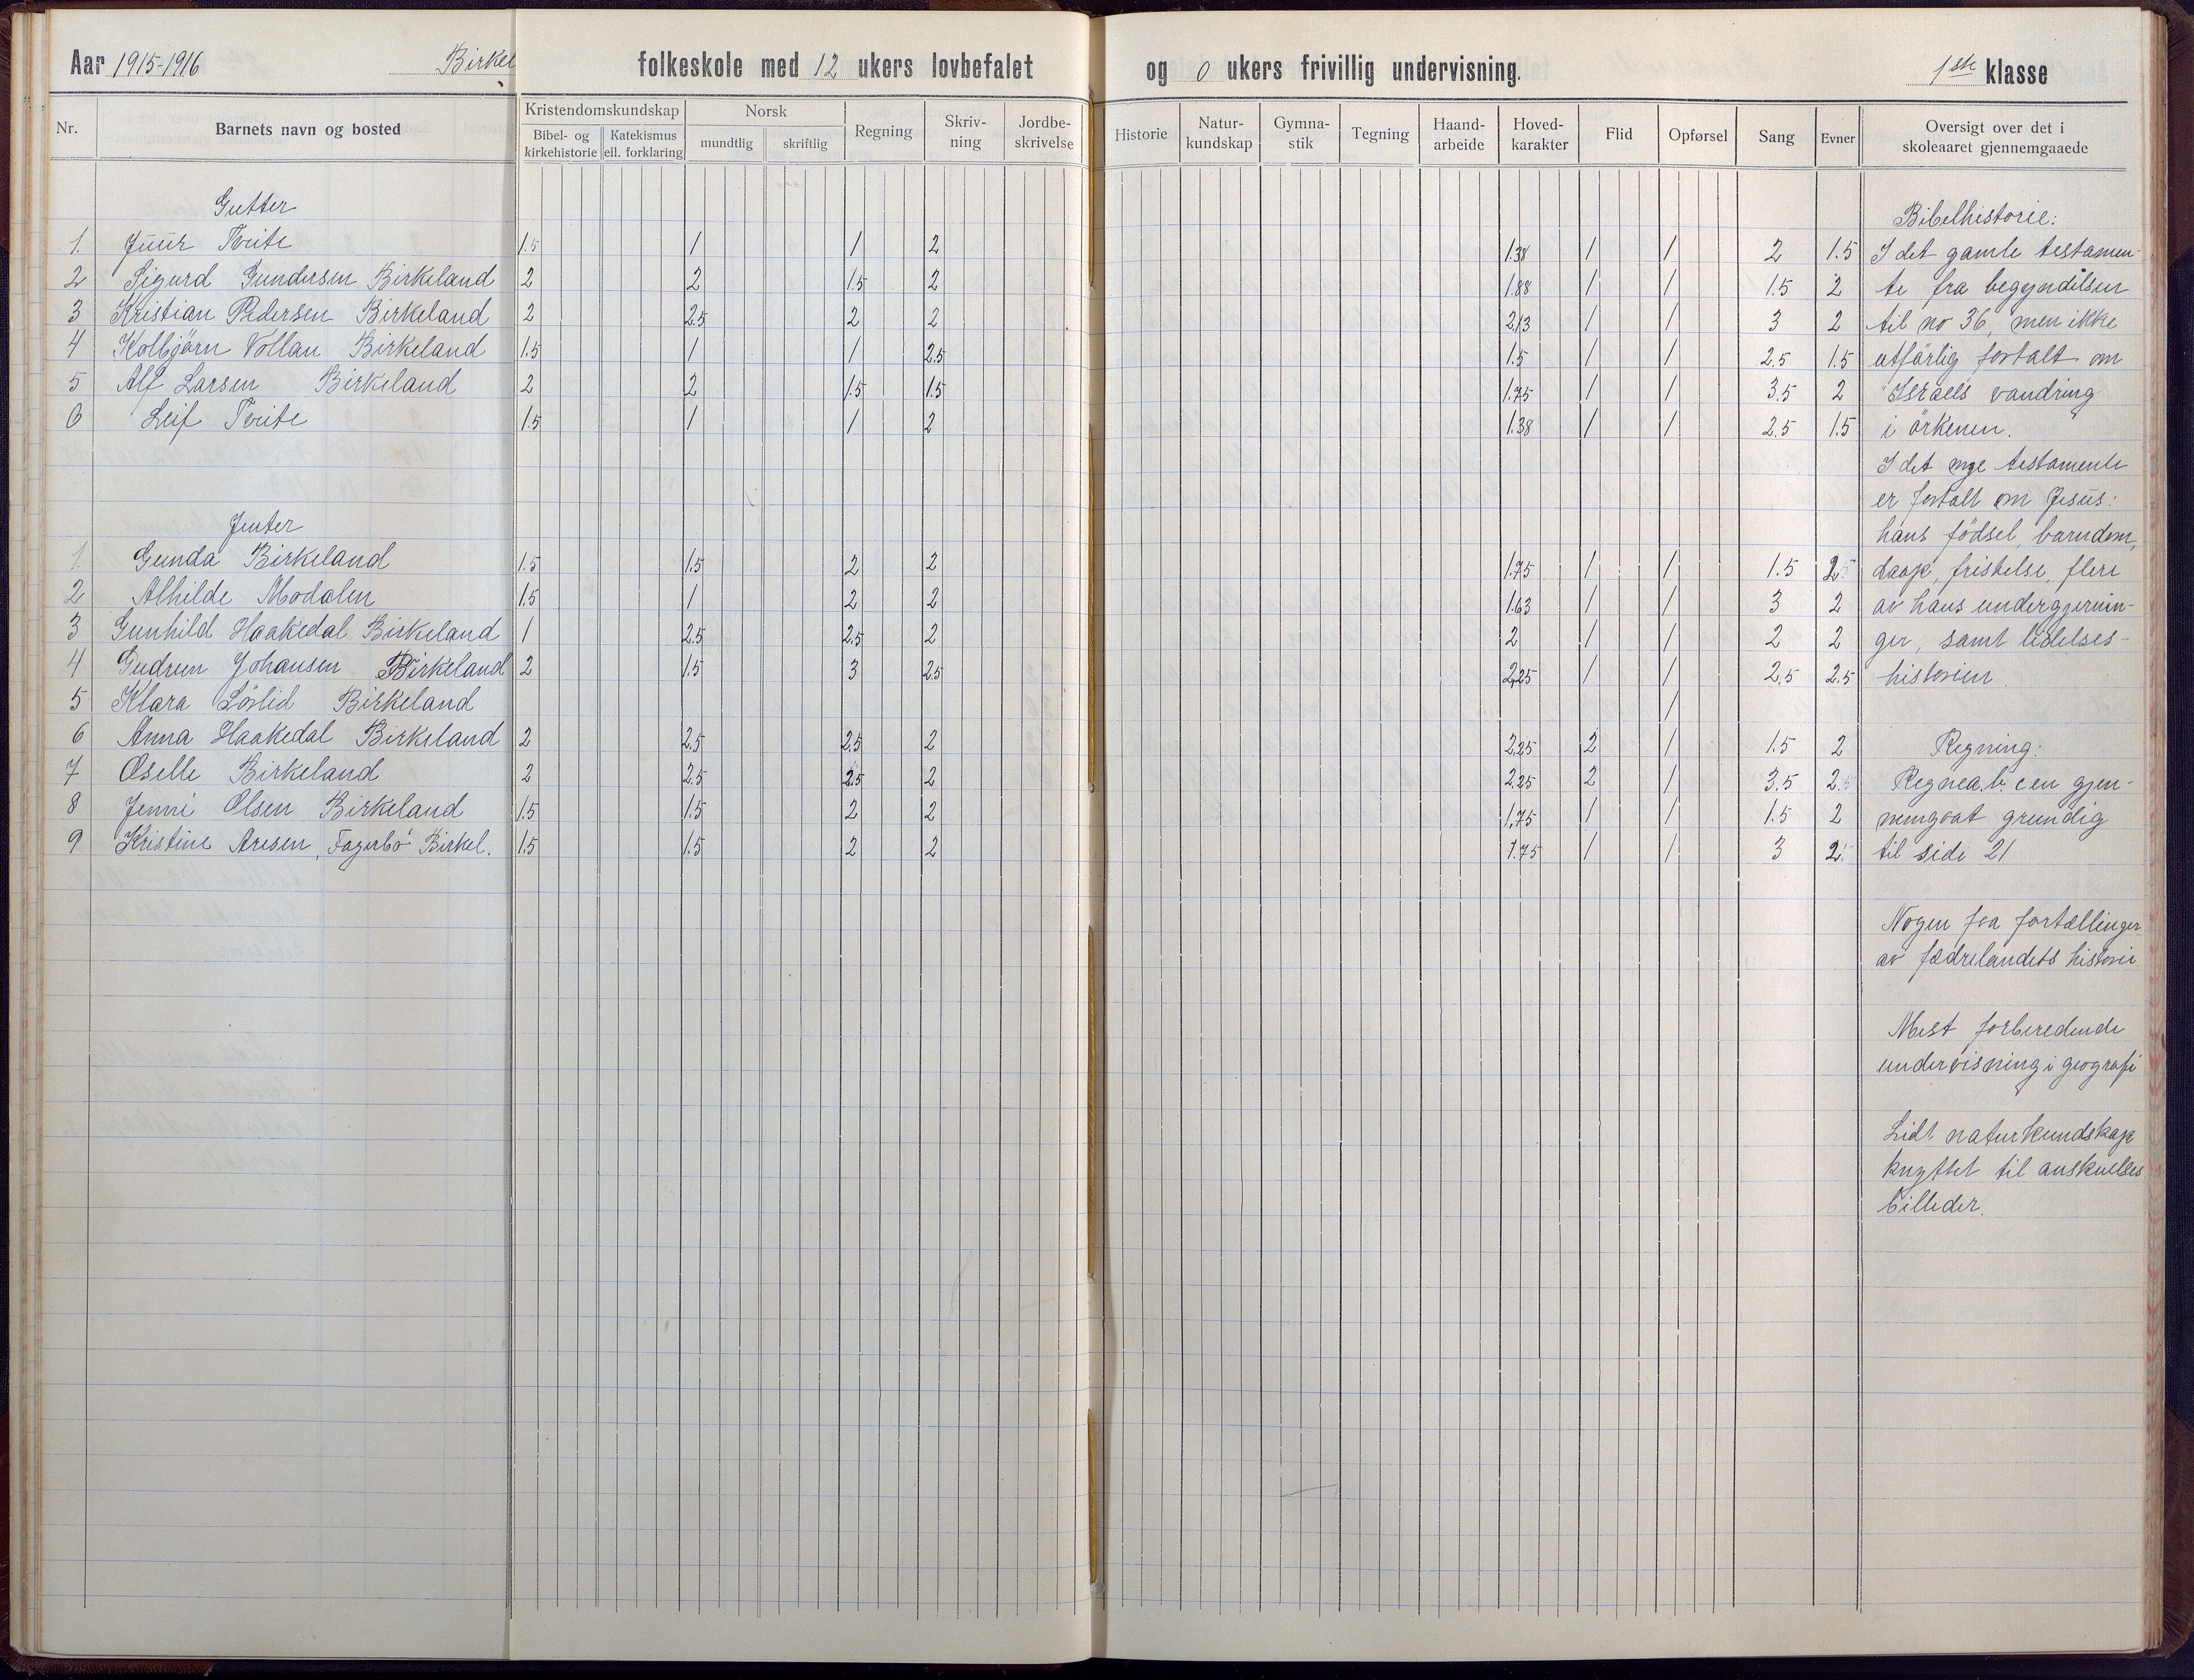 Aar 1915-1916 Birkel folkeskole med 12 ukers lovbefalet og 0 ukers frivillig undervisning. 1ste klasse
Nr. Barnets navn og bosted Kristendomskundskap Norsk Regning Skriv-ning Jordbe-skrivelse Historie Natur-kundskap Gymna-stik Tegning Haand-arbeide Hoved-karakter Flid Opførsel Sang Evner Oversigt over det i skoleaaret gjennemgaaede
Bibel- og kirkehistorie Katekismus ell. forklaring mundtlig skriftlig
Gutter Bibelhistorie:
1. Juur Tveite 1.5 1 1 2 1.38 1 1 2 1.5 I det gamle testamen-
2 Sigurd Gundersen Birkeland 2 2 1.5 2 1.88 1 1 1.5 2 te fra begyndelsen
3 Kristian Pedersen Birkeland 2 2.5 2 2 2,13 1 1 3 2 til no 36, men ikke
4 Kolbjörn Vollan Birkeland 1.5 1 1 2.5 1.5 1 1 2.5 1.5 utförlig fortalt om
5 Alf Larsen Birkeland 2 2 1.5 1.5 1.75 1 1 3.5 2 Israels vandring
6 Leif Tveite 1.5 1 1 2 1.38 1 1 2.5 1.5 i örkenen.
I det nye testamente
er fortalt om Jesus:
Jenter hans födsel, barndom,
1. Gunda Birkeland 1.5 1.5 2 2 1.75 1 1 1.5 2.5 daap, fristelse, flere
2 Alhilde Modalen 1.5 1 2 2 1.63 1 1 3 2 av hans undergjernin-
3 Gunhild Haakedal Birkeland 1 2.5 2.5 2 2 1 1 2 2 ger, samt lidelses-
4 Gudrun Johansen Birkeland 2 1.5 3 2.5 2,25 1 1 2,5 2.5 historien
5 Klara Birkeland 1
6 Anna Haakedal Birkeland 2 2.5 2.5 2 2,25 2 1 1.5 2 Regning:
7 Birkeland 2 2.5 2.5 2 2.25 2 1 3.5 2.5 Regnea.b.cen gjen-
8 Jenni Olsen Birkeland 1.5 1.5 2 2 1,75 1 1 1.5 2 nemgaat grundig
9 Kristine Aresen, Fagerbö Birkel. 1.5 1.5 2 2 1.75 1 1 3 2 til side 21
Nogen faa fortællinger
av fædrelandets historie
Mest forberedende
undervisning i geografi
Lidt naturkundskap
knyttet til anskuelses
billeder.